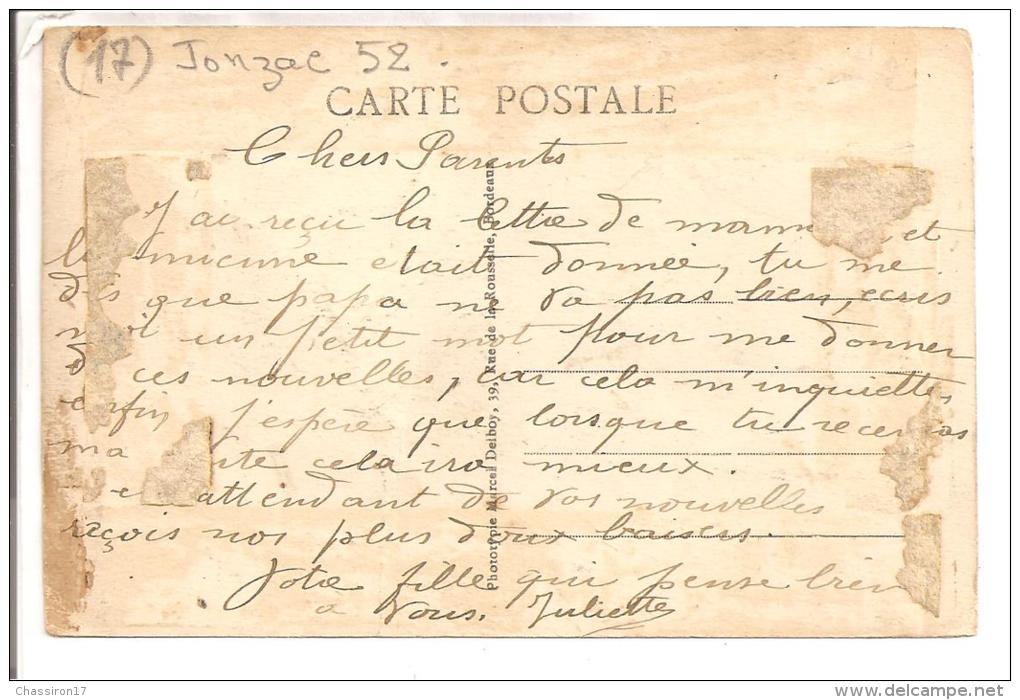 (17) Jonzac 52.
CARTE POSTALE
Chers Parents
J'ai reçu la lettre de et
était donnée, tu me
dis que papa ne va pas bien, ecris
moi un petit mot pour me donner
de ces nouvelles, car cela m'inquiette,
enfin j'espère que lorsque tu recevras
ma cela ira mieux.
en attendant de vos nouvelles
reçois nos plus doux baisers.
Votre fille qui pense bien
a vous. Juliette
Phototypie Marcel Delboy, 39, Rue de la Rousselle, Bordeaux
Chassiron17
www.delcampe.net